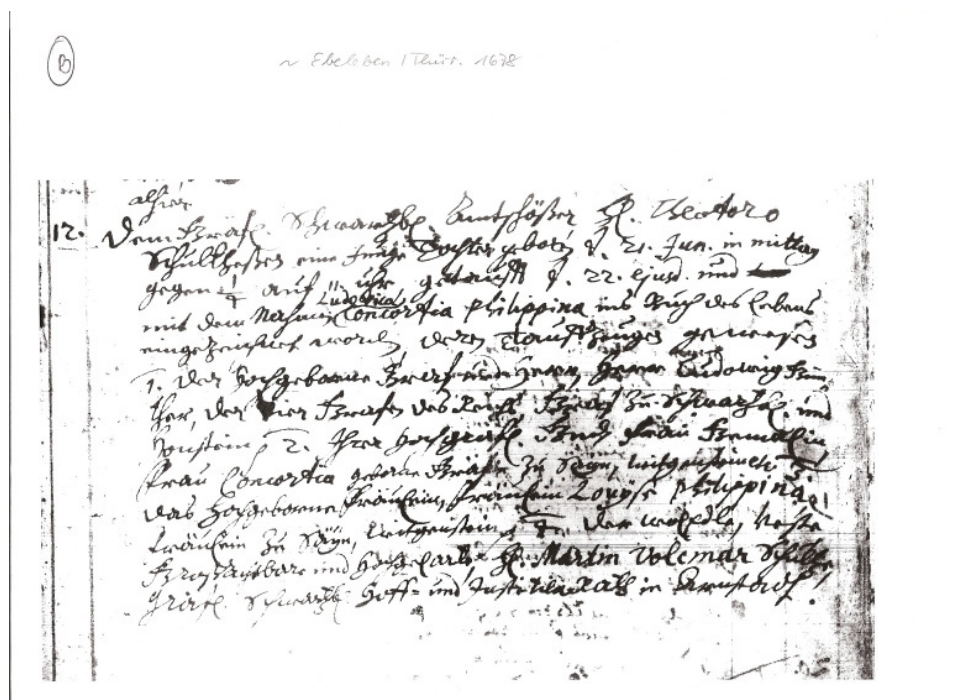 B
~ Ebeleben / Thür. 1678
alhier
12. Dem Gräfl. Schwartzb. Ambtschößer H. Theodoro
Schultheßen eine junge Tochter geboren d. 21. Jun. in mittag
gegen auf uhr getaufft d. 22. ejusd. und
mit dem Nahmen Ludovica Concordia Philippina ins Buch des Lebens
eingezeichnet worden, deren Tauffzeugen gewesen
1. Der Hochgeborne Graf und Herr, Herr Ludwig Gün
ther, der Vier Grafen des Reichs, Graf zu Schwartzb. und
Honstein 2. Ihrer Hochgräfl. Frau Gemahlin,
Frau Concordia geborne Gräfin zu Sayn, Witgenstein 3.
das Hochgeborne Fräulein, Fräulein Louyse Philippina,
Fräulein zu Sayn, Witgenstein, 4. Der WohlEdle, Veste
Großachtbare und Hochgelarte H. Martin Volcmar Schultze,
Gräfl. Schwartzb. Hoff- und Justitien Rath in Arnstadt.